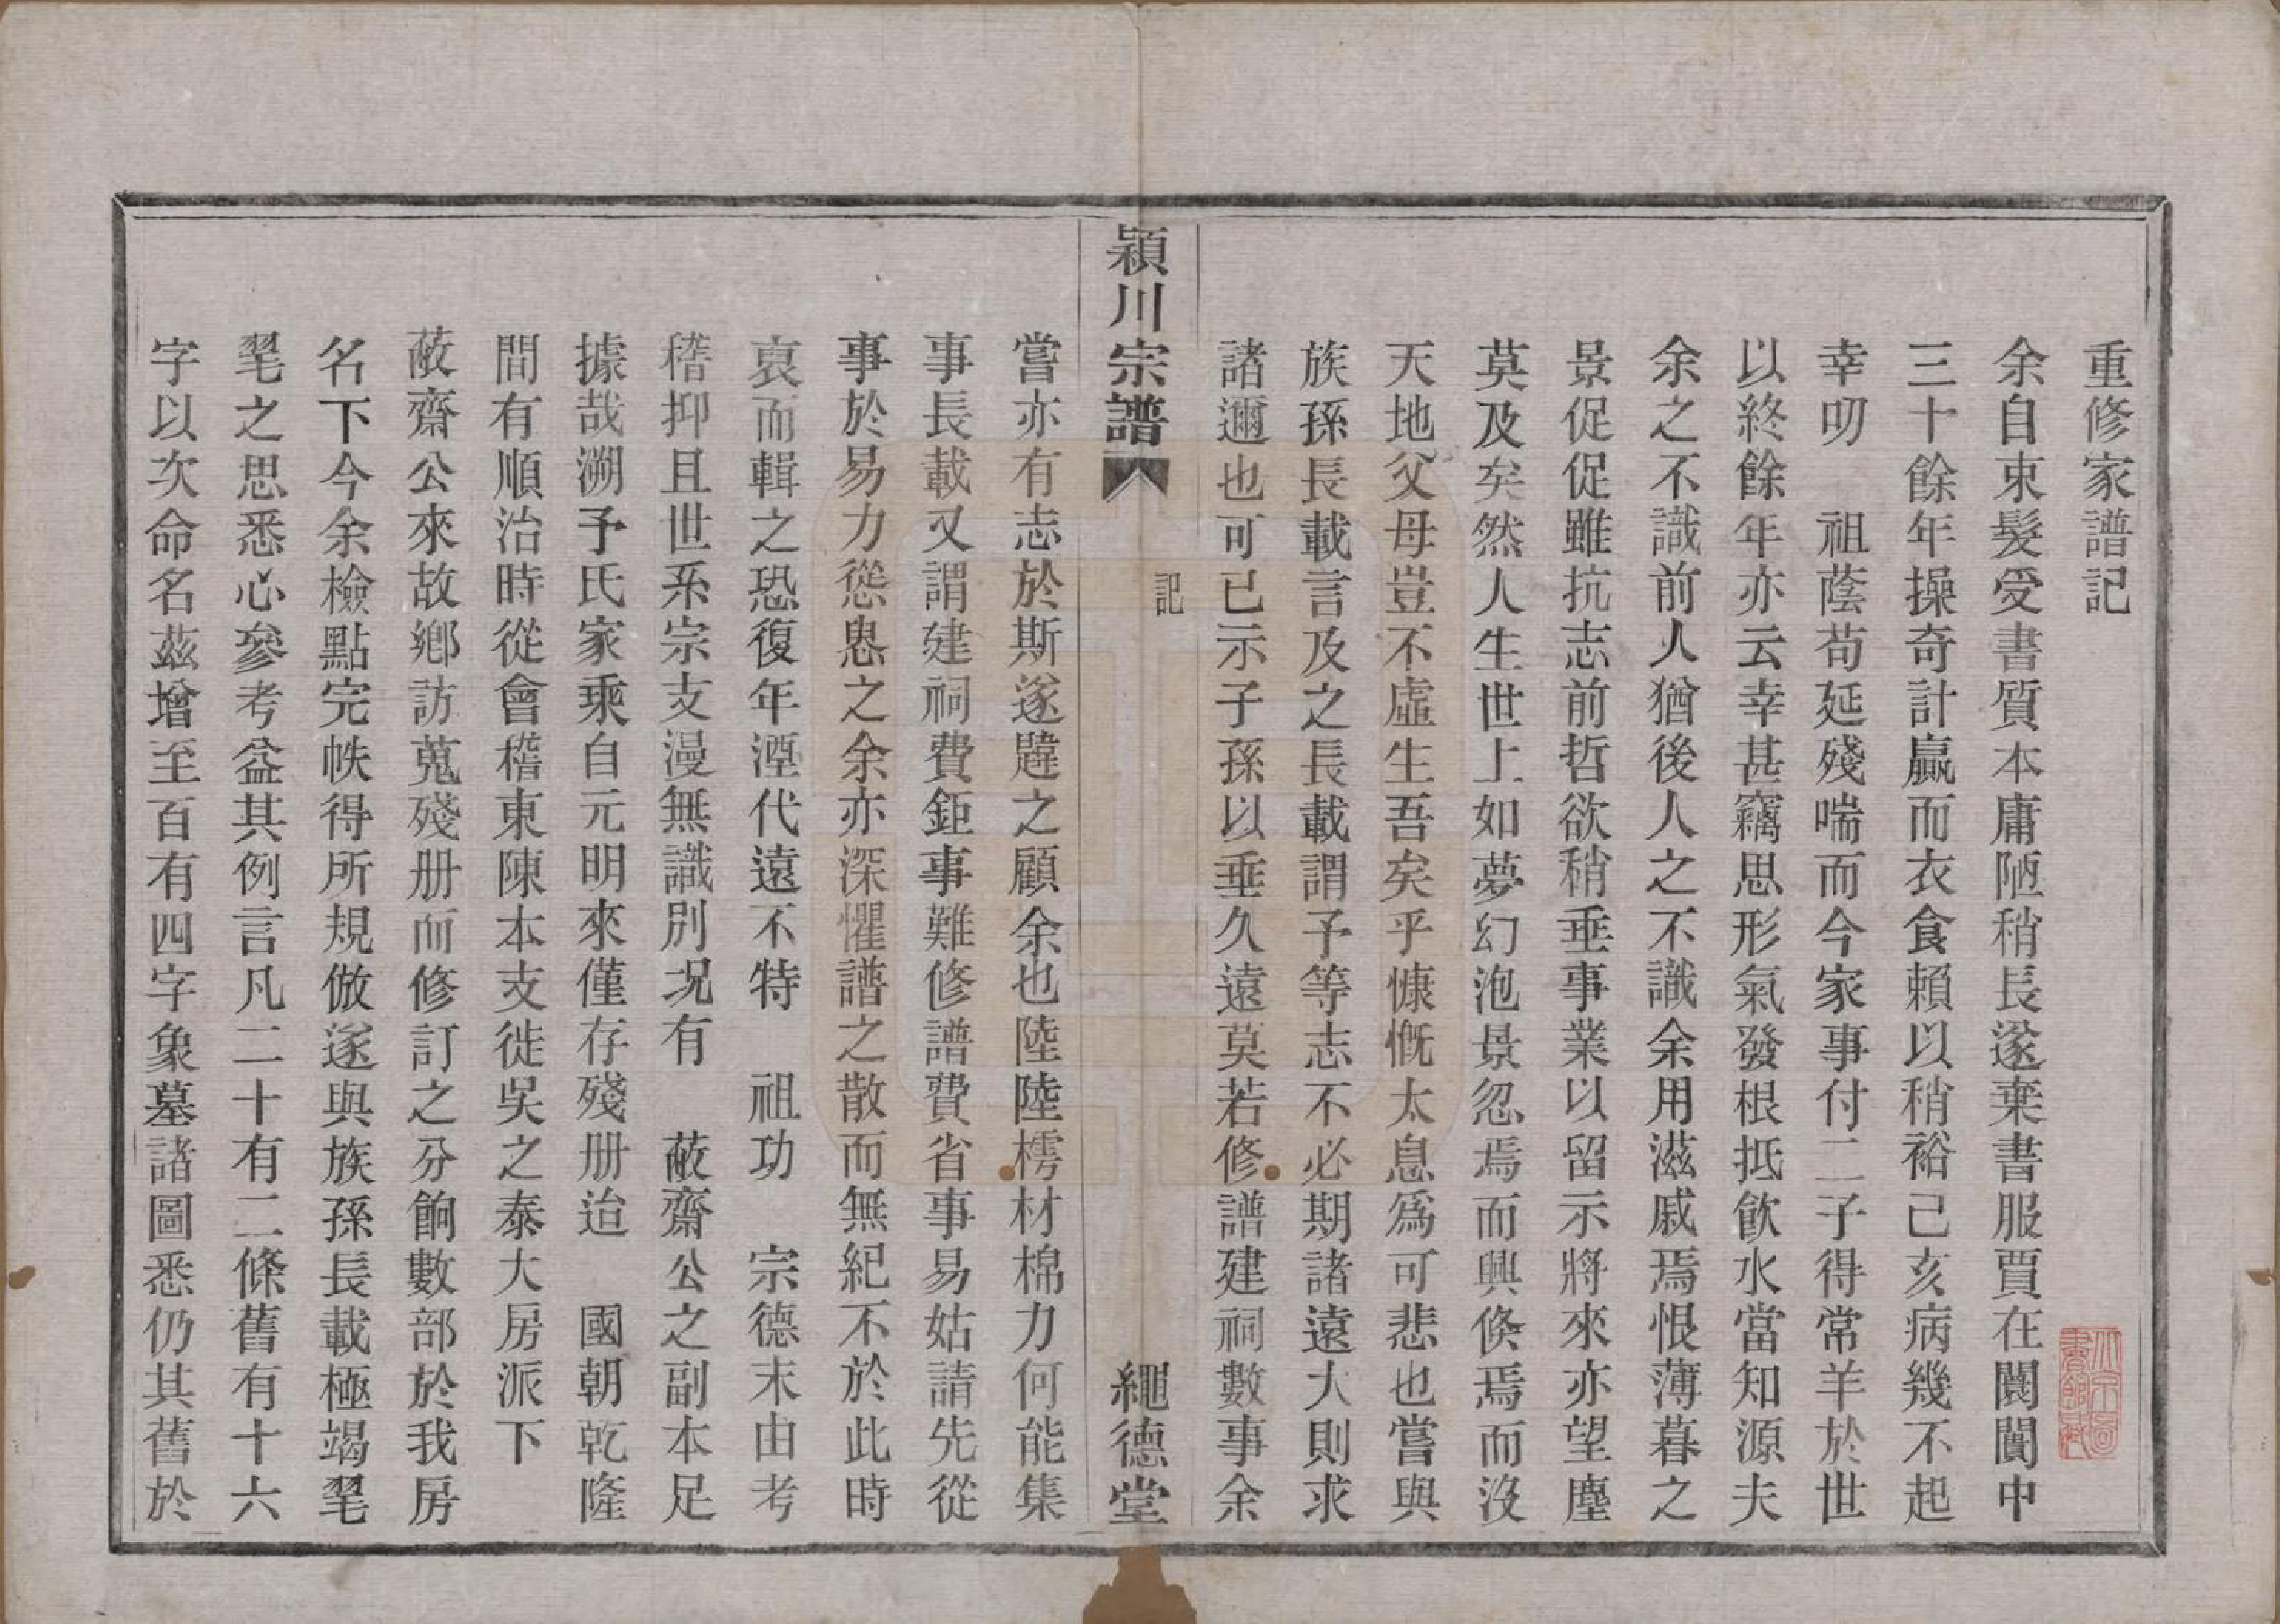 重修家譜記
余自束髮受書質本庸陋稍長遂棄書服賈在闤闠中
三十餘年操奇計贏而衣食賴以稍裕己亥病幾不起
幸叨　祖蔭苟延殘喘而今家事付二子得常羊於世
以終餘年亦云幸甚竊思形氣發根抵飲水當知源夫
余之不識前人猶後人之不識余用滋戚焉恨薄暮之
景促促雖抗志前哲欲稍垂事業以留示將來亦望塵
莫及矣然人生世上如夢幻泡景忽焉而興倐焉而沒
天地父母豈不虛生吾矣乎慷慨太息爲可悲也嘗與
族孫長載言及之長載謂予等志不必期諸遠大則求
諸邇也可已示子孫以垂久遠莫若修譜建祠數事余
潁川宗譜
記
繩德堂
嘗亦有志於斯遂韙之顧余也陸陸樗材棉力何能集
事長載又謂建祠費鉅事難修譜費省事易姑請先從
事於易力慫恿之余亦深懼譜之散而無紀不於此時
裒而輯之恐復年湮代遠不特　祖功　宗德末由考
稽抑且世系宗支漫無識別况有　蔽齋公之副本足
據哉溯予氏家乘自元明來僅存殘册迨　國朝乾隆
間有順治時從會稽東陳本支徙吳之泰大房派下
蔽齋公來故鄉訪蒐殘册而修訂之分餉數部於我房
名下今余檢點完帙得所規倣遂與族孫長載極竭毣
毣之思悉心參考益其例言凡二十有二條舊有十六
字以次命名茲增至百有四字象墓諸圖悉仍其舊於